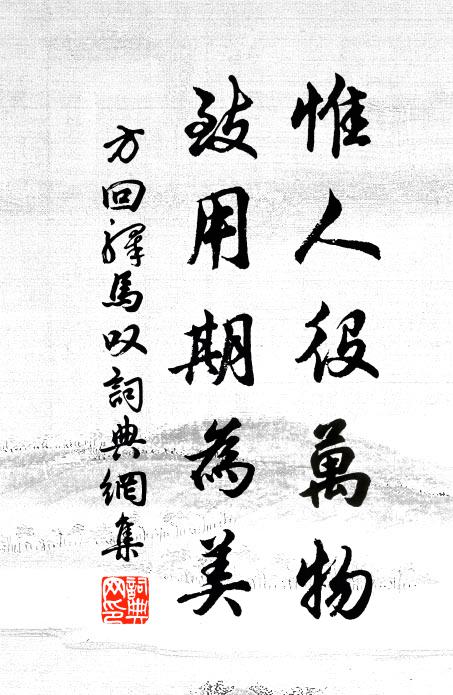 惟人役萬物
致用期為美
方回驛馬叹詞典網集
詞典網印